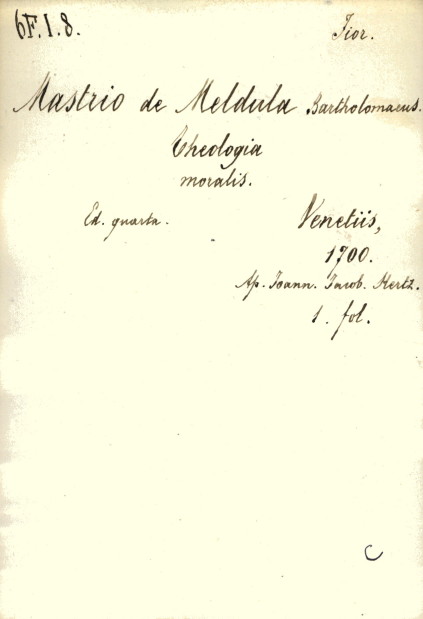 6F.I.8. Fior.
Mastrio de Meldula Bartholomaeus.
Theologia
moralis.
Ed. quarta. Venetiis,
1700.
Ap. Joann. Jacob. Hertz.
1. fol.
C